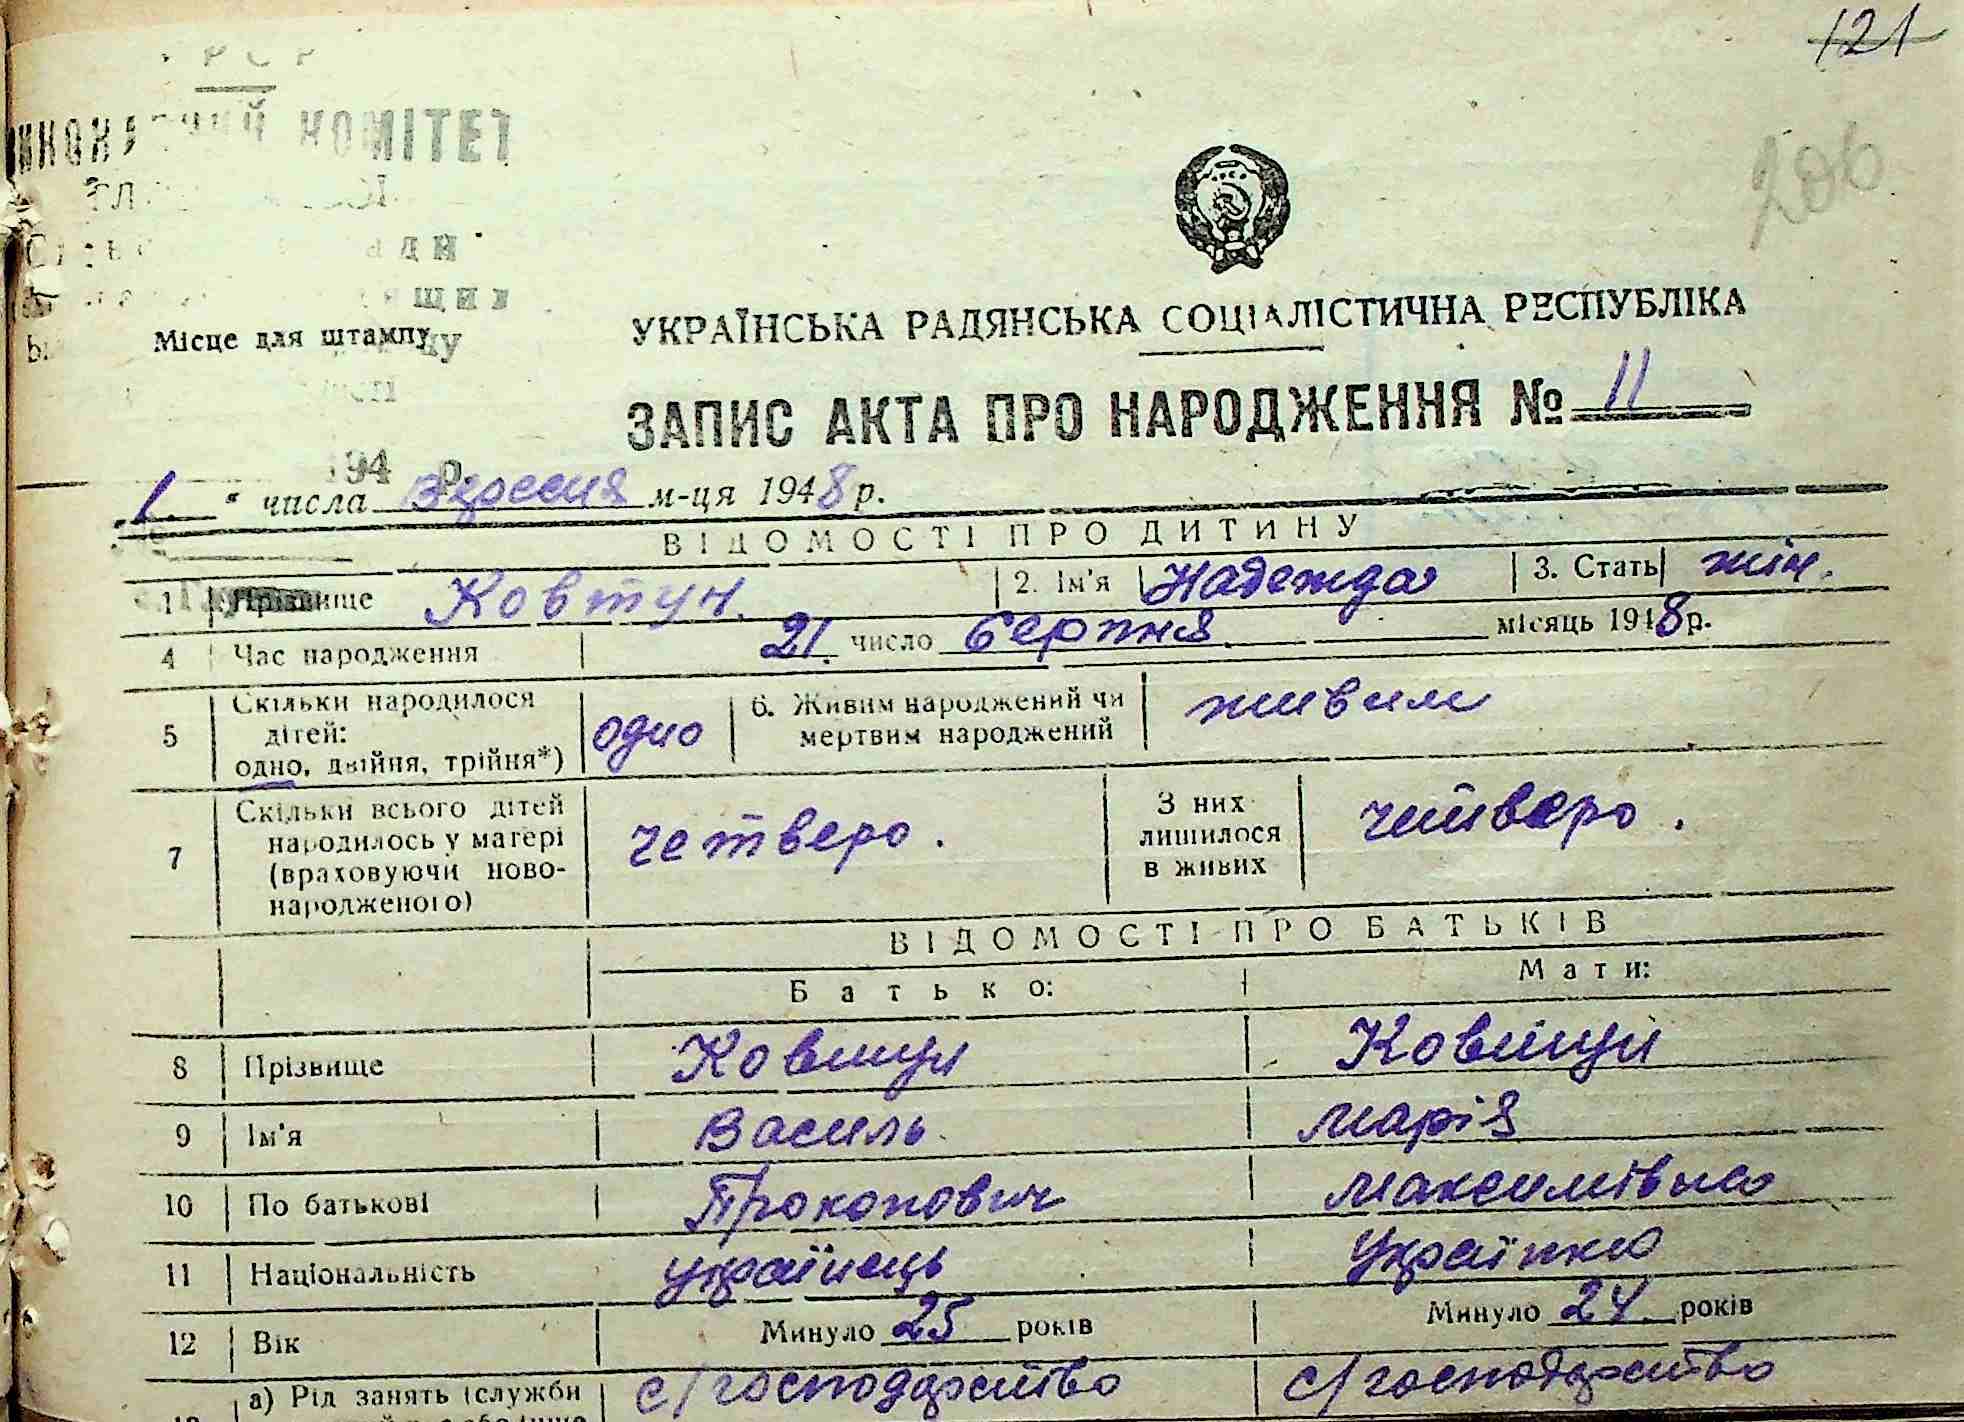 121
206
КОМІТЕТ
Місце для штампу
УКРАЇНСЬКА РАДЯНСЬКА СОЦІАЛІСТИЧНА РЕСПУБЛІКА
ЗАПИС АКТА ПРО НАРОДЖЕННЯ № 11
194 р.
1. " числа Вересня м-ця 1948 р.
ВІДОМОСТІ ПРО ДИТИНУ
1 Прізвище Ковтун. 2. Ім'я Надежда 3. Стать жін.
4 Час народження 21. число Серпня. місяць 1948 р.
5 Скільки народилося дітей: одно, двійня, трійня*) одно 6. Живим народжений чи мертвим народжений живим
7 Скільки всього дітей народилось у матері (враховуючи новонародженого) четверо. З них лишилося в живих четверо.
ВІДОМОСТІ ПРО БАТЬКІВ
Батько: Мати:
8 Прізвище Ковтун Ковтун
9 Ім'я Василь Марія
10 По батькові Прокопович Максимівна
11 Національність українець Українка
12 Вік Минуло 25 років Минуло 24 років
а) Рід занять (служби с/господарство с/господарство